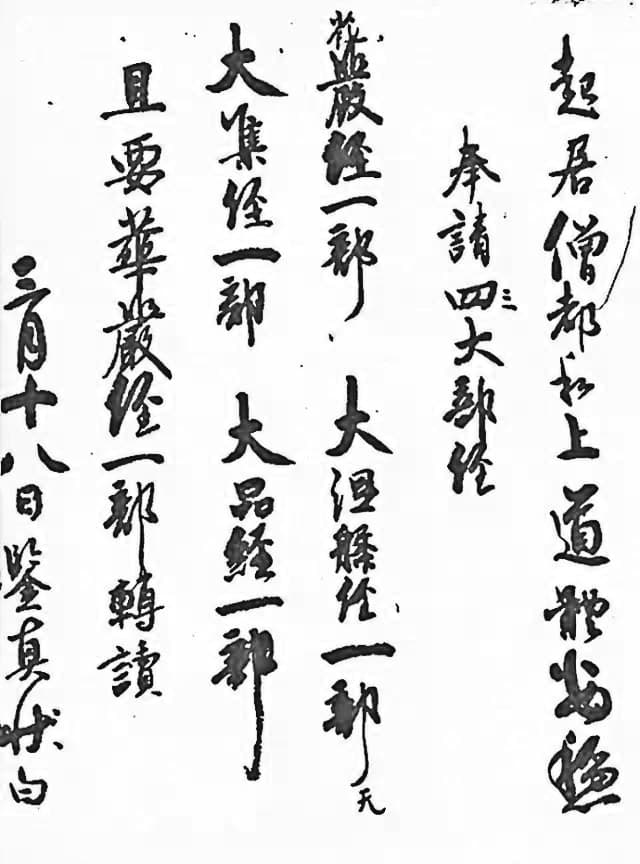 起居僧都和上道體安穩
奉請四三大部経
花嚴経一部 大涅槃経一部 天
大集経一部 大品経一部
且要華嚴経一部轉讀
三月十八日鑒真状白